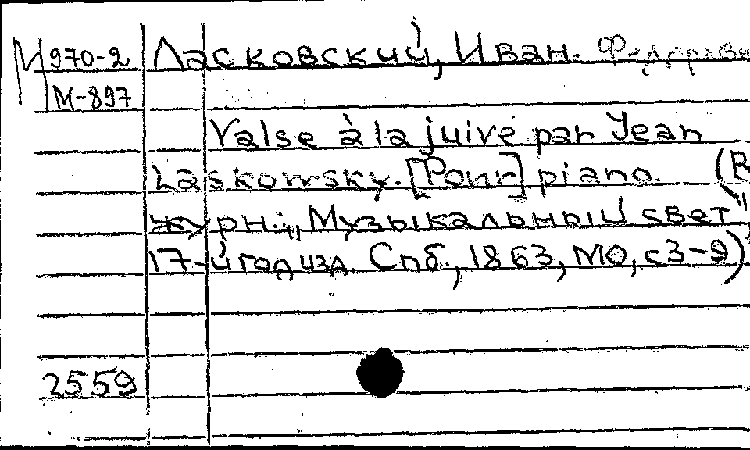 М 970-2 Ласковский, Иван. Федорович
М-897
Valse à la juive par Jean
Laskowsky. [Pour] piano. (В
журн.: „Музыкальный свет"
17-й год изд. Спб., 1863, №0, с3-9)
2559